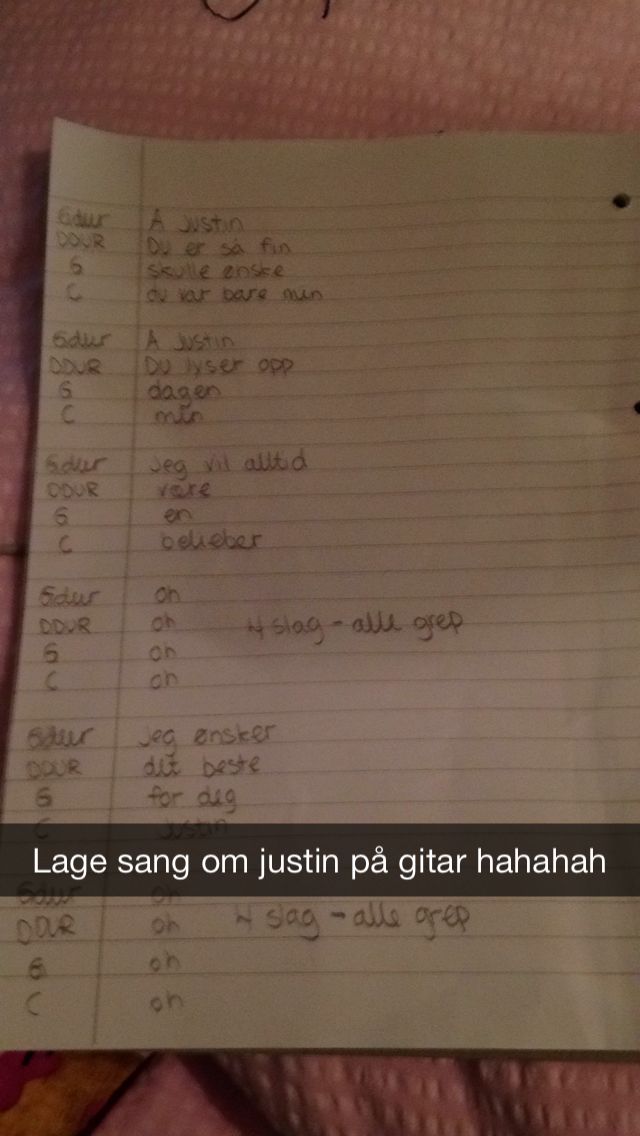 Gdur Å Justin
DDUR Du er så fin
G skulle ønske
C du var bare min
Gdur Å Justin
DDUR Du lyser opp
G dagen
C min
Gdur Jeg vil alltid
DDUR være
G en
C belieber
Gdur oh
DDUR oh 4 slag - alle grep
G oh
C oh
Gdur Jeg ønsker
DDUR det beste
G for deg
C Justin
Lage sang om justin på gitar hahahah
Gdur oh
DDUR oh 4 slag - alle grep
G oh
C oh